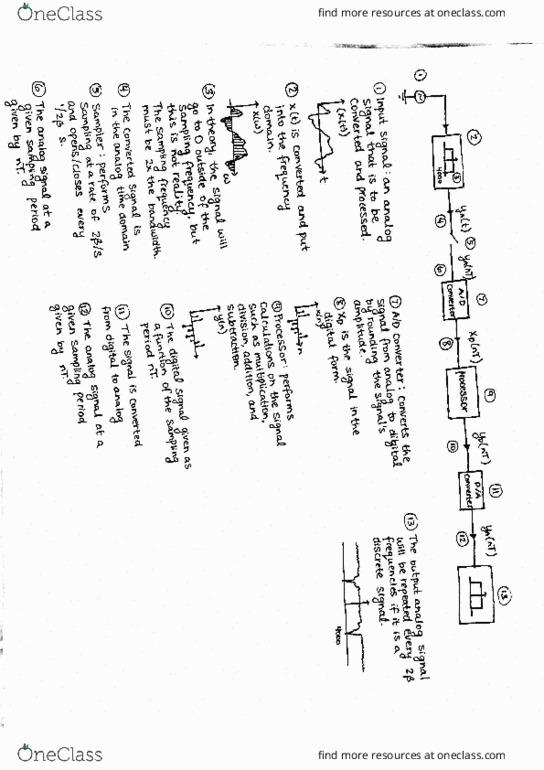 OneClass
find more resources at oneclass.com
①
②
③
4000
④
yₐ(t)
⑤
yₐ(nT)
⑥
⑦
A/D
converter
⑧
X_D(nT)
⑨
PROCESSOR
⑩
y_D(nT)
⑪
D/A
converter
⑫
yₐ(nT)
⑬
① Input signal: an analog
signal that is to be
converted and processed.
x(t)
t
② x(t) is converted and put
into the frequency
domain.
x(ω)
ω
③ In theory, the signal will
go to 0 outside of the
sampling frequency, but
this is not reality.
The sampling frequency
must be 2x the bandwidth.
④ The converted signal is
in the analog time domain
⑤ Sampler: performs
sampling at a rate of 2β/s
and opens/closes every
1/2β s.
⑥ The analog signal at a
given sampling period
given by nT.
⑦ A/D converter: converts the
signal from analog to digital
by rounding the signal's
amplitude.
⑧ X_D is the signal in the
digital form.
x(n)
n
⑨ Processor: performs
calculations on the signal
such as multiplication,
division, addition, and
subtraction.
y(n)
⑩ The digital signal given as
a function of the sampling
period nT.
⑪ The signal is converted
from digital to analog
⑫ The analog signal at a
given sampling period
given by nT.
⑬ The output analog signal
will be repeated every 2β
frequencies if it is a
discrete signal.
4000
OneClass
find more resources at oneclass.com